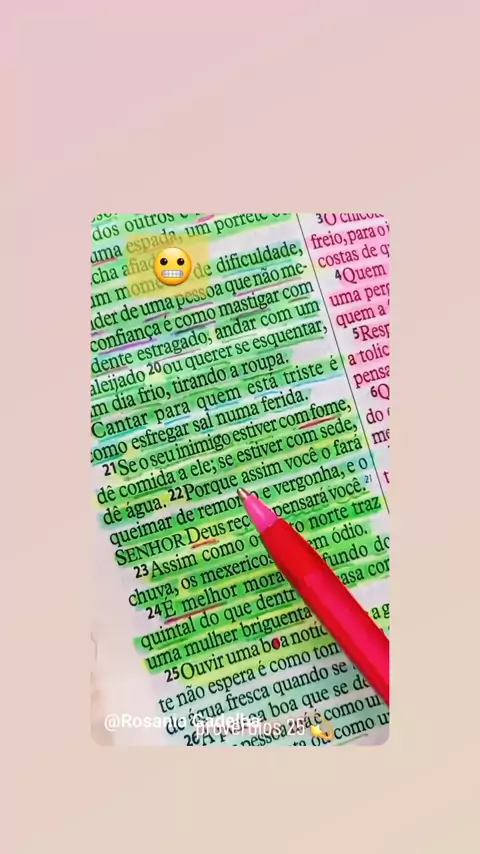 dos outros é
uma espada, um porrete o
cha afiad
um mom de dificuldade,
der de uma pessoa que não me-
confiança é como mastigar com
dente estragado, andar com um
aleijado 20ou querer se esquentar,
m dia frio, tirando a roupa.
Cantar para quem está triste é
omo esfregar sal numa ferida.
21Se o seu inimigo estiver com fome,
dê comida a ele; se estiver com sede,
dê água. 22Porque assim você o fará
queimar de remo o e vergonha, e o
SENHOR Deus reco pensará você. 21
23Assim como o norte traz
chuva, os mexerico em ódio.
24É melhor mora fundo do
quintal do que dentr asa com
uma mulher briguenta
25Ouvir uma boa notíc
te não espera é como tom
de água fresca quando se
26A p boa que se de
pessoa má é como u
3O chico
freio, para o
costas de q
4Quem
uma per
quem a
5Resp
a tolic
pensa
6Q
do
me
@Rosania Gadelha
provérbios 25